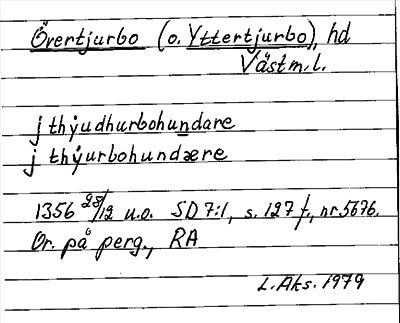 Övertjurbo (o. Yttertjurbo), hd
Västm. l.
j thyudhurbohundare
j thyurbohundære
1356 28/12 u.o. SD 7:1, s. 127 f., nr. 5676.
Or. på perg., RA
L. Aks. 1979